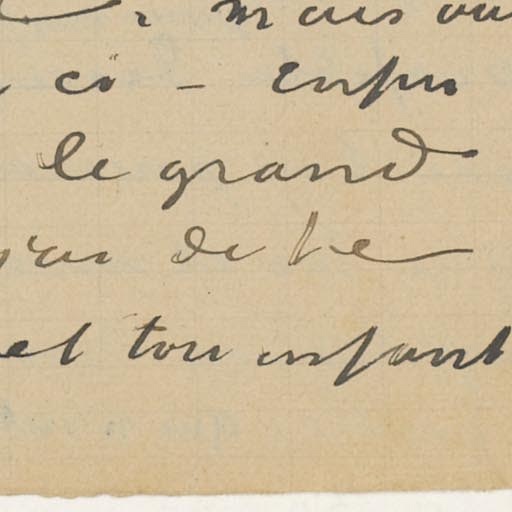 mais
ci - Enfin
le grand
de te
et ton enfant